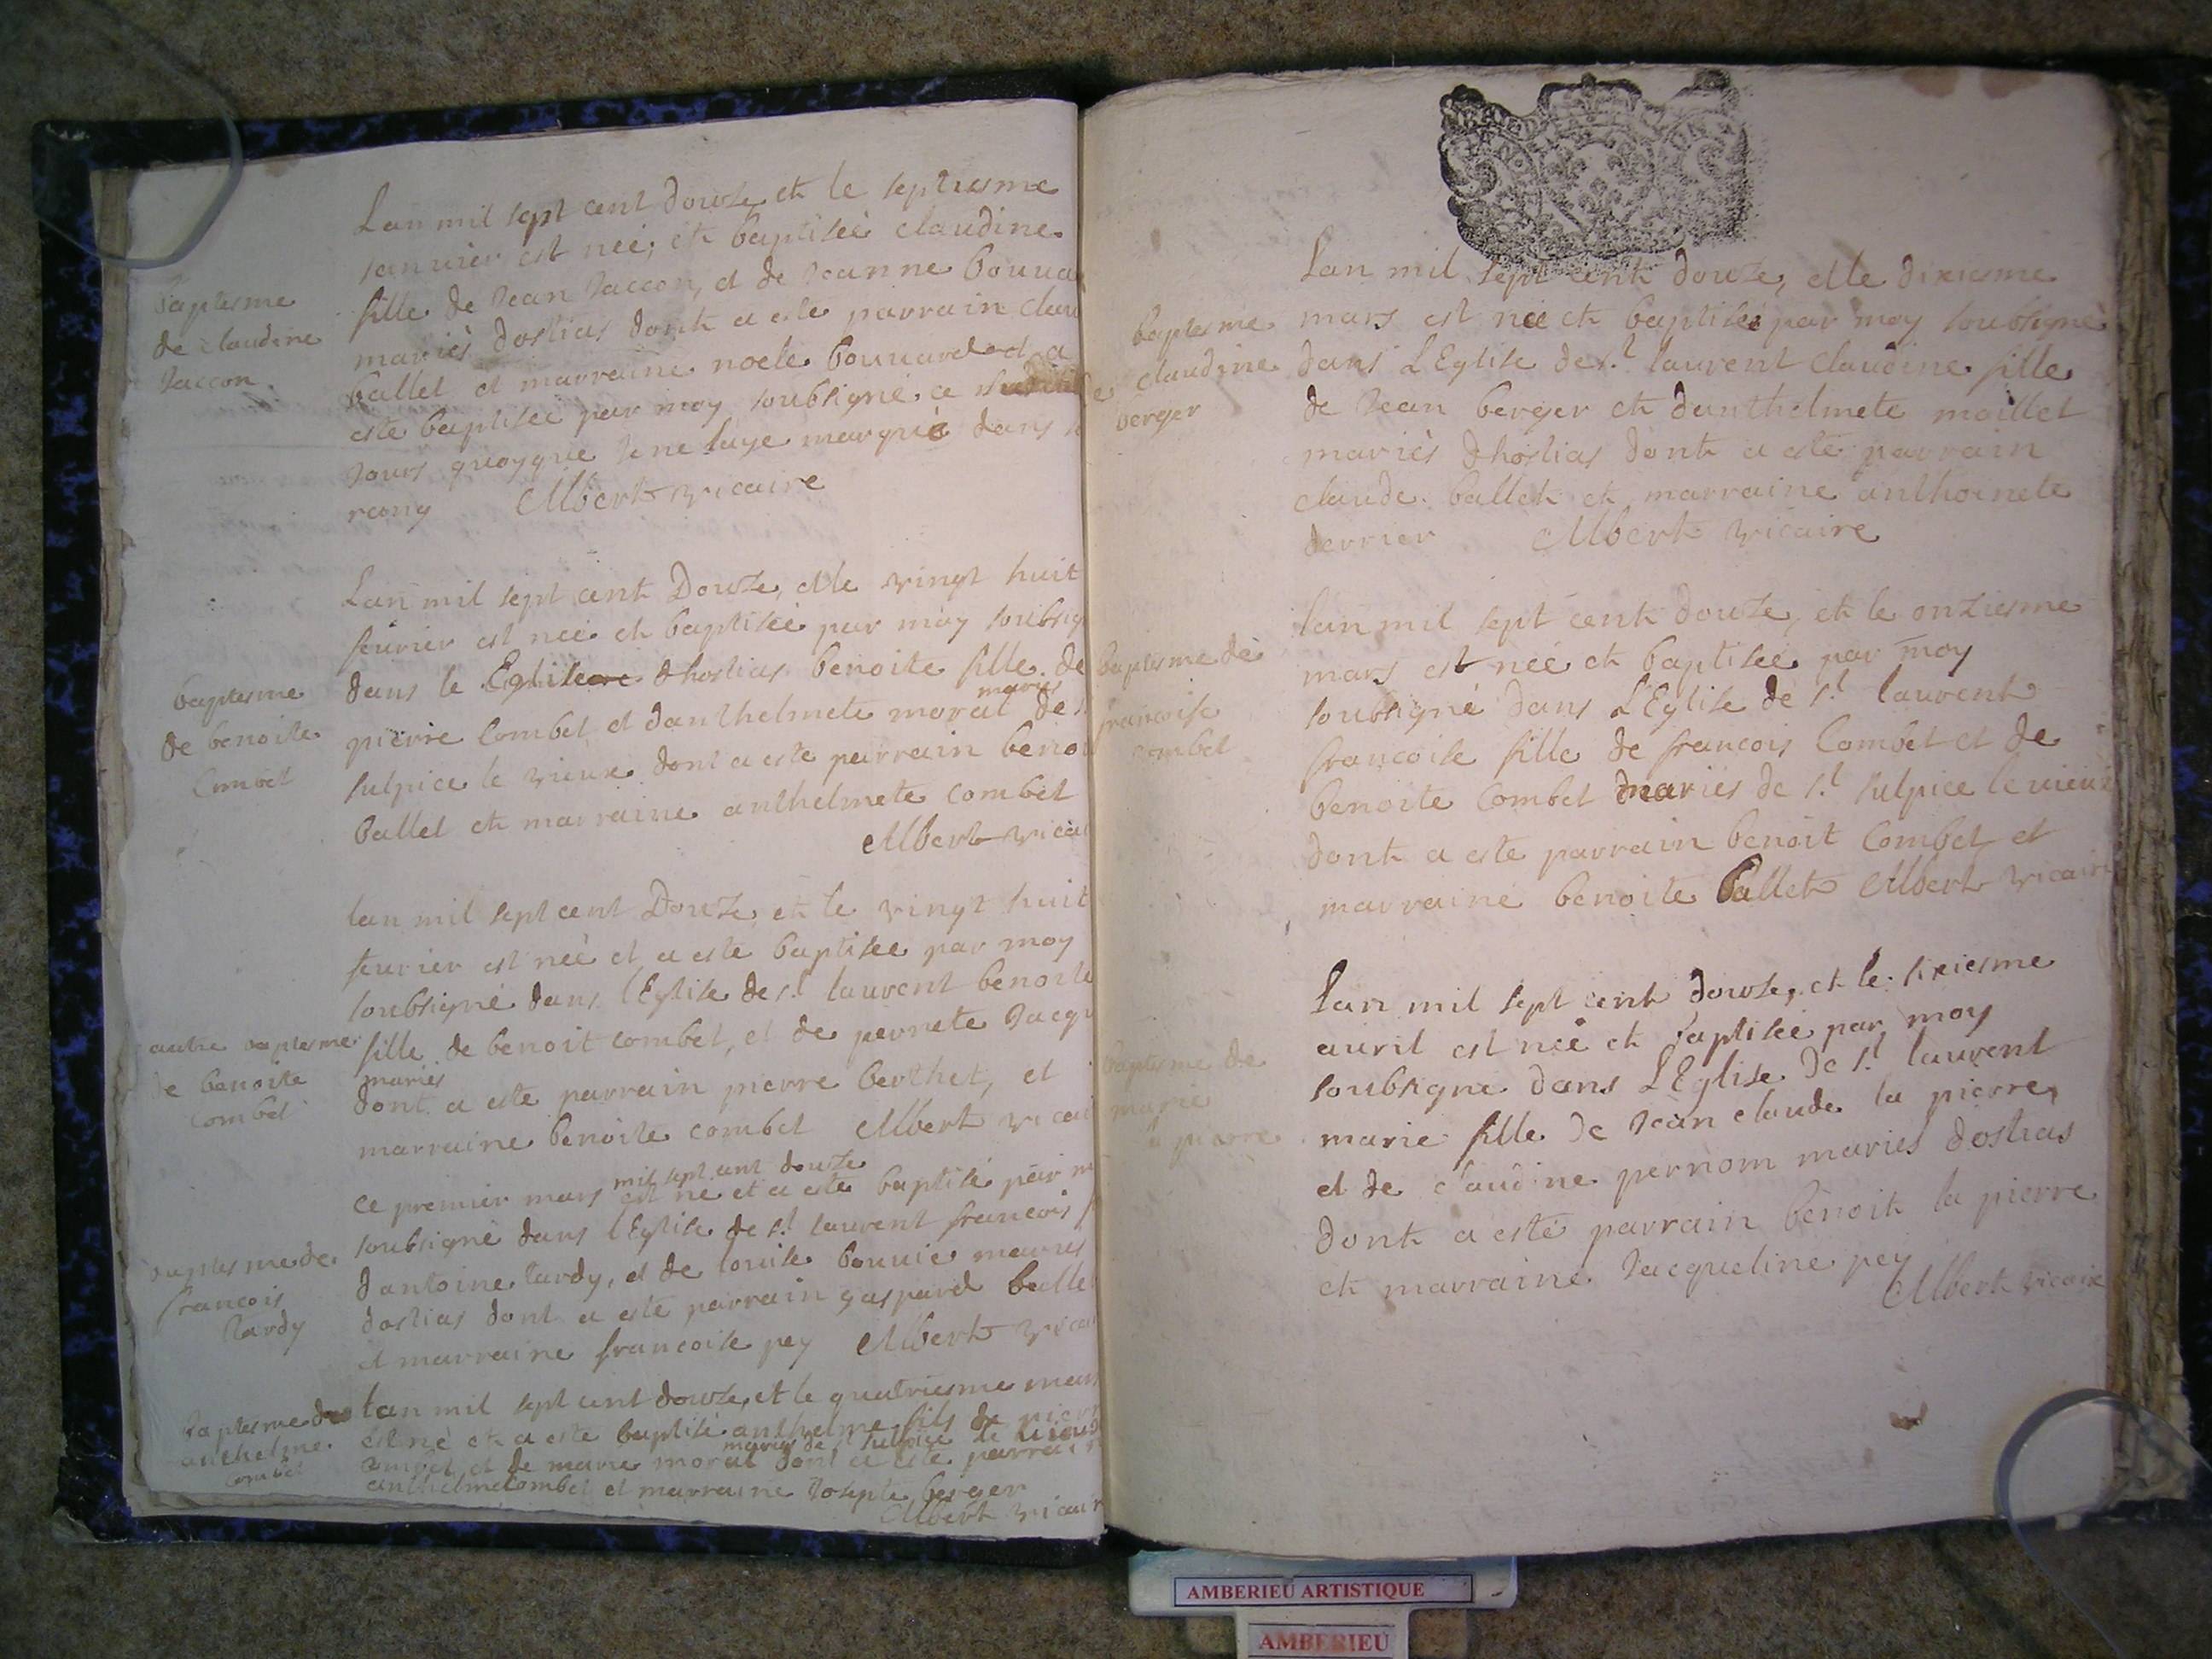 baptesme
de claudine
Jaccon
Lan mil sept cent douze et le septiesme
janvier est neé, et baptiseé claudine
fille de Jean Jaccon, et de Jeanne
mariés dostias dont a esté parrain
ballet et marraine noele bouuard et a
esté baptiseé par moy soubsigné ce
jours quoyque Je ne laye marqué dans
rang Albert vicaire
baptesme
de benoite
Combet
Lan mil sept cent Douze, et le vingt huit
feurier est neé et baptiseé par moy
dans le Eglise dhostias benoite fille de
pierre Combet et danthelmete morat mariés de
sulpice le vieux dont a esté parrain
ballet et marraine anthelmete combet
Albert
autre baptesme
de benoite
Combet
lan mil sept cent Douze, et le vingt huit
feurier est neé et a esté baptisée par moy
soubsigné dans lEglise de st laurent benoite
fille de benoit combet, et de pernete
mariés
dont a esté parrain pierre berthet, et
marraine benoite combet Albert
baptesme de
francois
Tardy
ce premier mars mil sept cent douze est né et a esté baptisé par
soubsigné dans lEglise de st laurent francois
dantoine tardy, et de louise bouuié mariés
dostias dont a esté parrain gaspard
et marraine francoise pey Albert
baptesme
anthelme
combet
Lan mil sept cent douze, et le quatriesme
est né et a esté baptisé anthelme fils de
et de marie morat mariés de st sulpice le dont a esté
anthelme Combet et marraine Josepte berger
Albert
baptesme
claudine
berger
Lan mil sept cent douze, et le dixiesme
mars est neé et baptiseé par moy soubsigné
dans LEglise de st laurent claudine fille
de Jean berger et danthelmete maillet
mariés dhostias dont a esté parrain
claude ballet et marraine anthoinete
derrier Albert vicaire
baptesme de
francoise
combet
lan mil sept cent douze, et le onziesme
mars est neé et baptiseé par moy
soubsigné dans LEglise de st laurent
francoise fille de francois Combet et de
benoite Combet mariés de st sulpice le vieux
dont a esté parrain benoit Combet et
marraine benoite ballet Albert vicaire
baptesme de
marie
la pierre
Lan mil sept cent douze, et le sixiesme
auril est neé et baptiseé par moy
soubsigné dans LEglise de st laurent
marie fille de Jean claude la pierre
et de claudine pernom mariés dostias
dont a esté parrain benoit la pierre
et marraine Jacqueline pey
Albert vicaire
AMBERIEU ARTISTIQUE
AMBERIEU